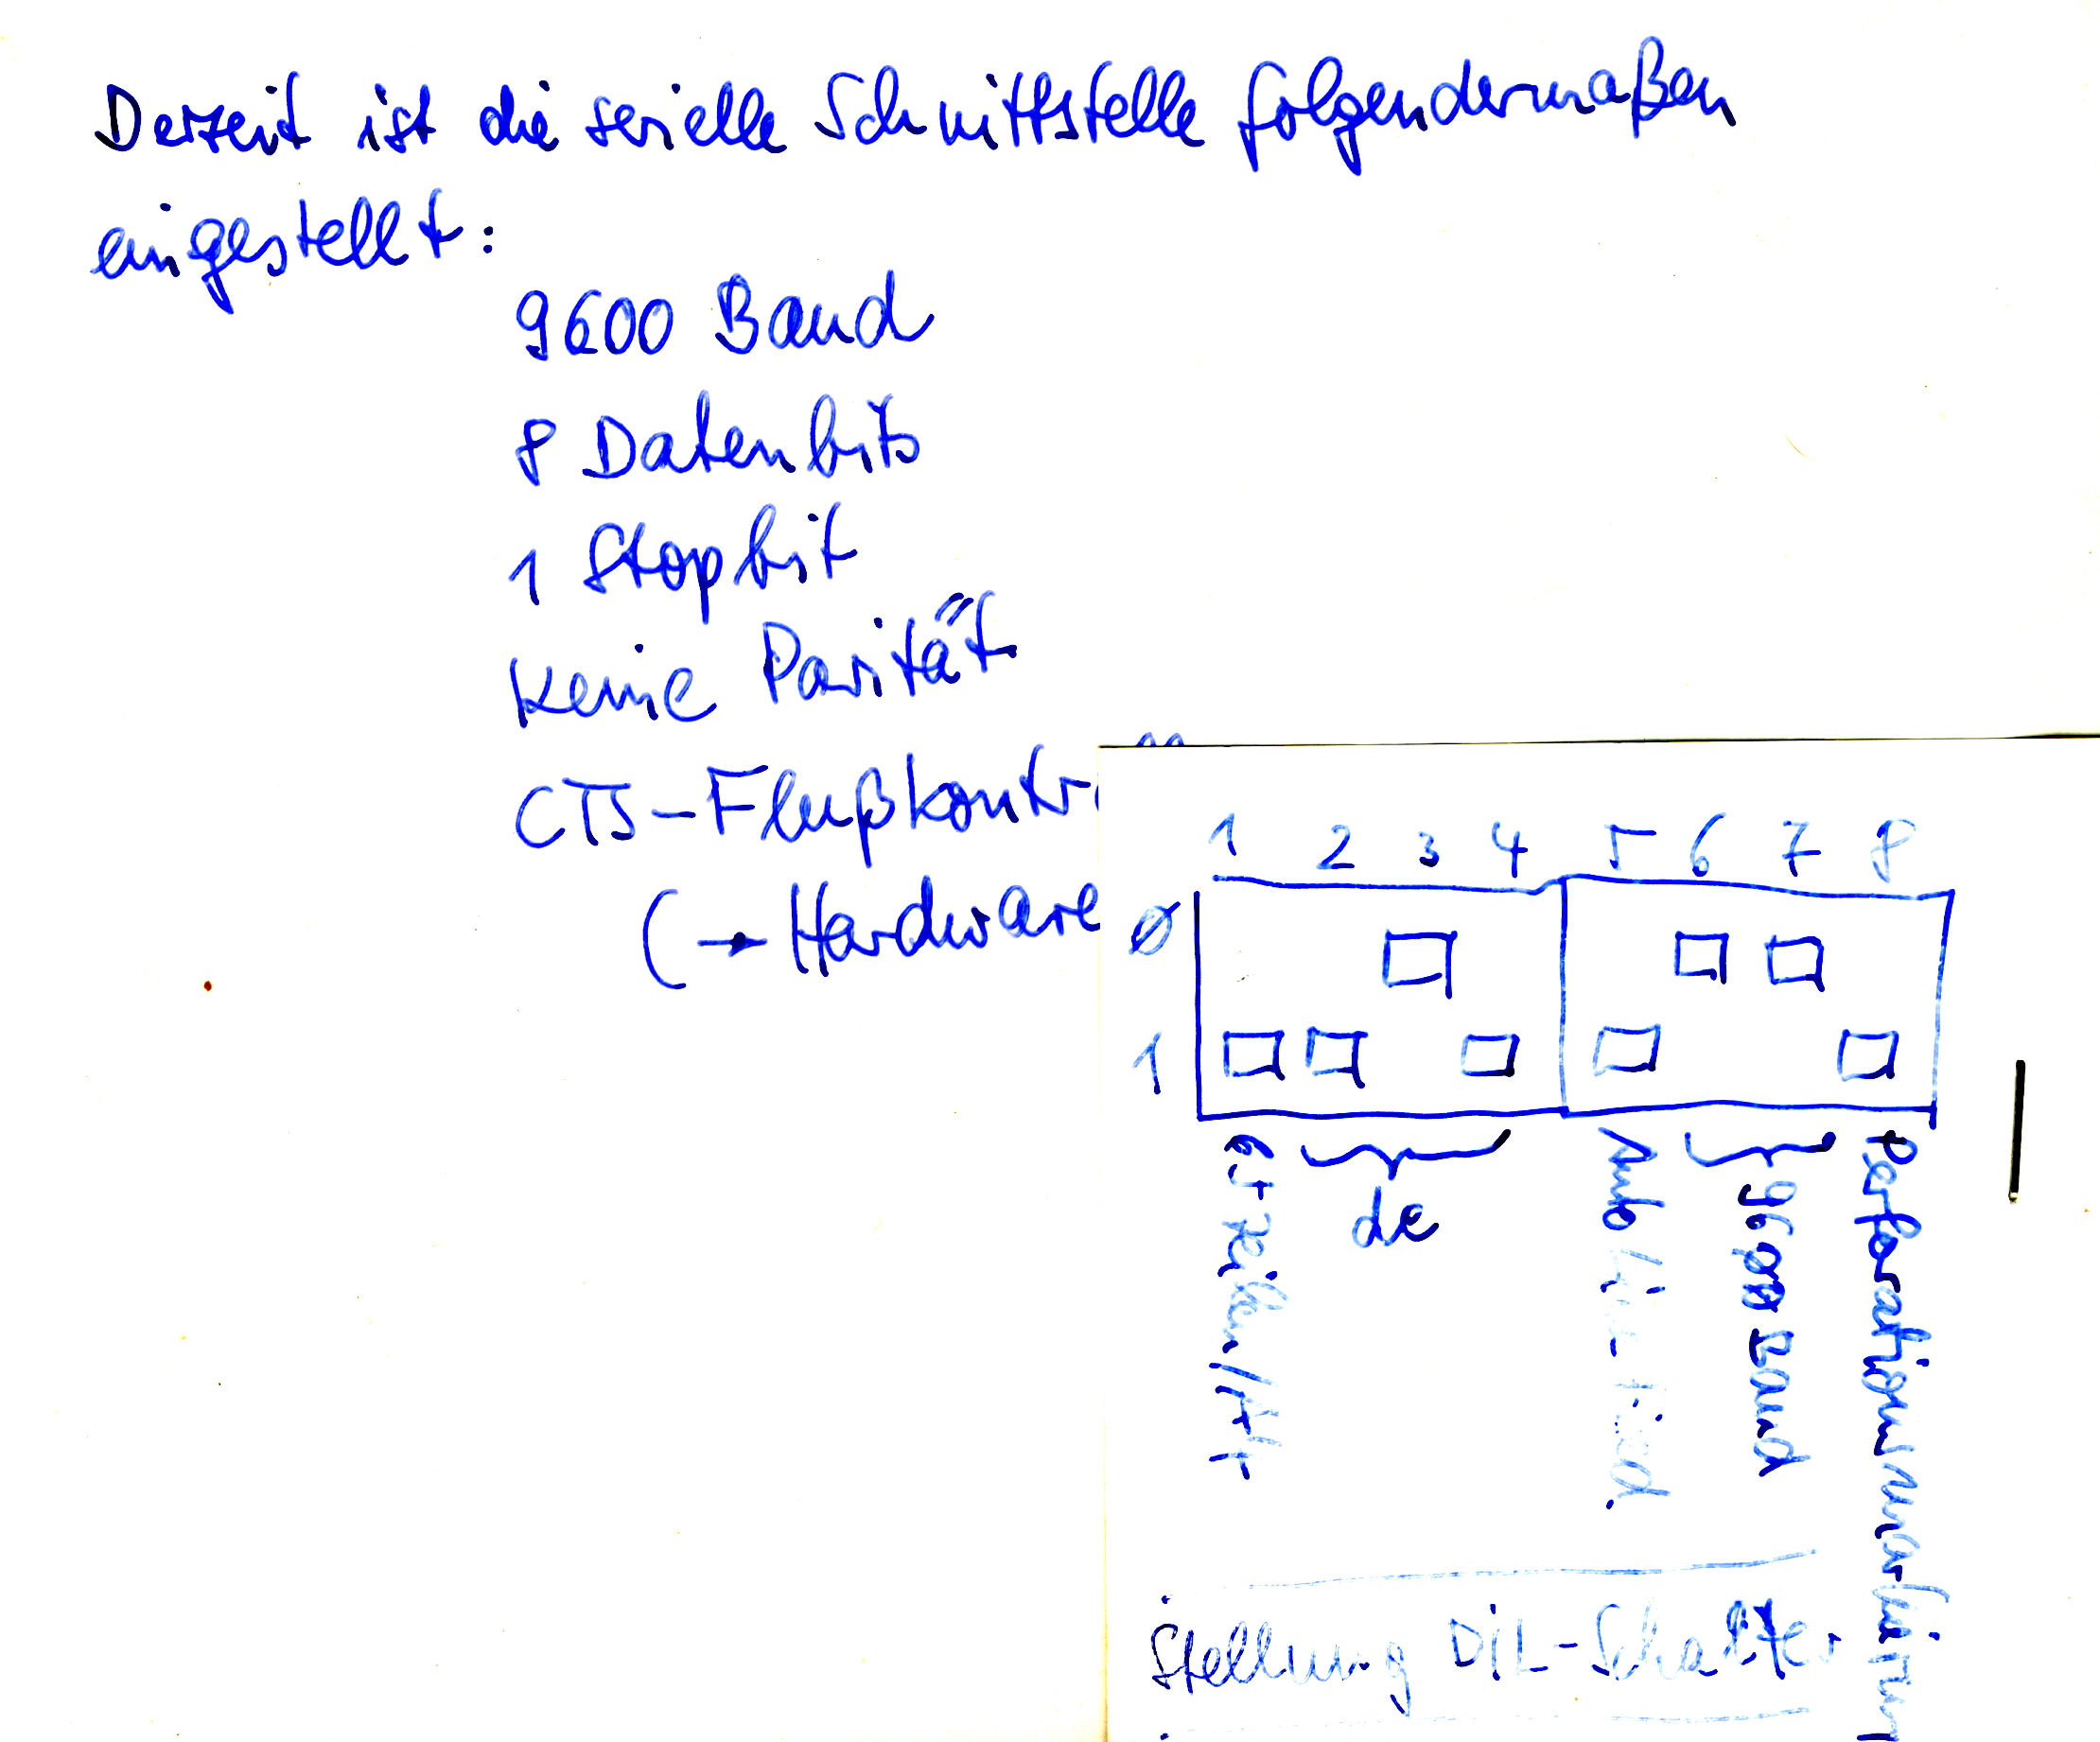 Derzeit ist die serielle Schnittstelle folgendermaßen
eingestellt:
9600 Baud
8 Datenbits
1 Stopbit
keine Parität
CTS-Flußkontr
(→ Hardware
1 2 3 4 5 6 7 8
0
1
65 Zeilen/
de
Auto
9600 Baud
Perforations
Stellung DIL-Schalter